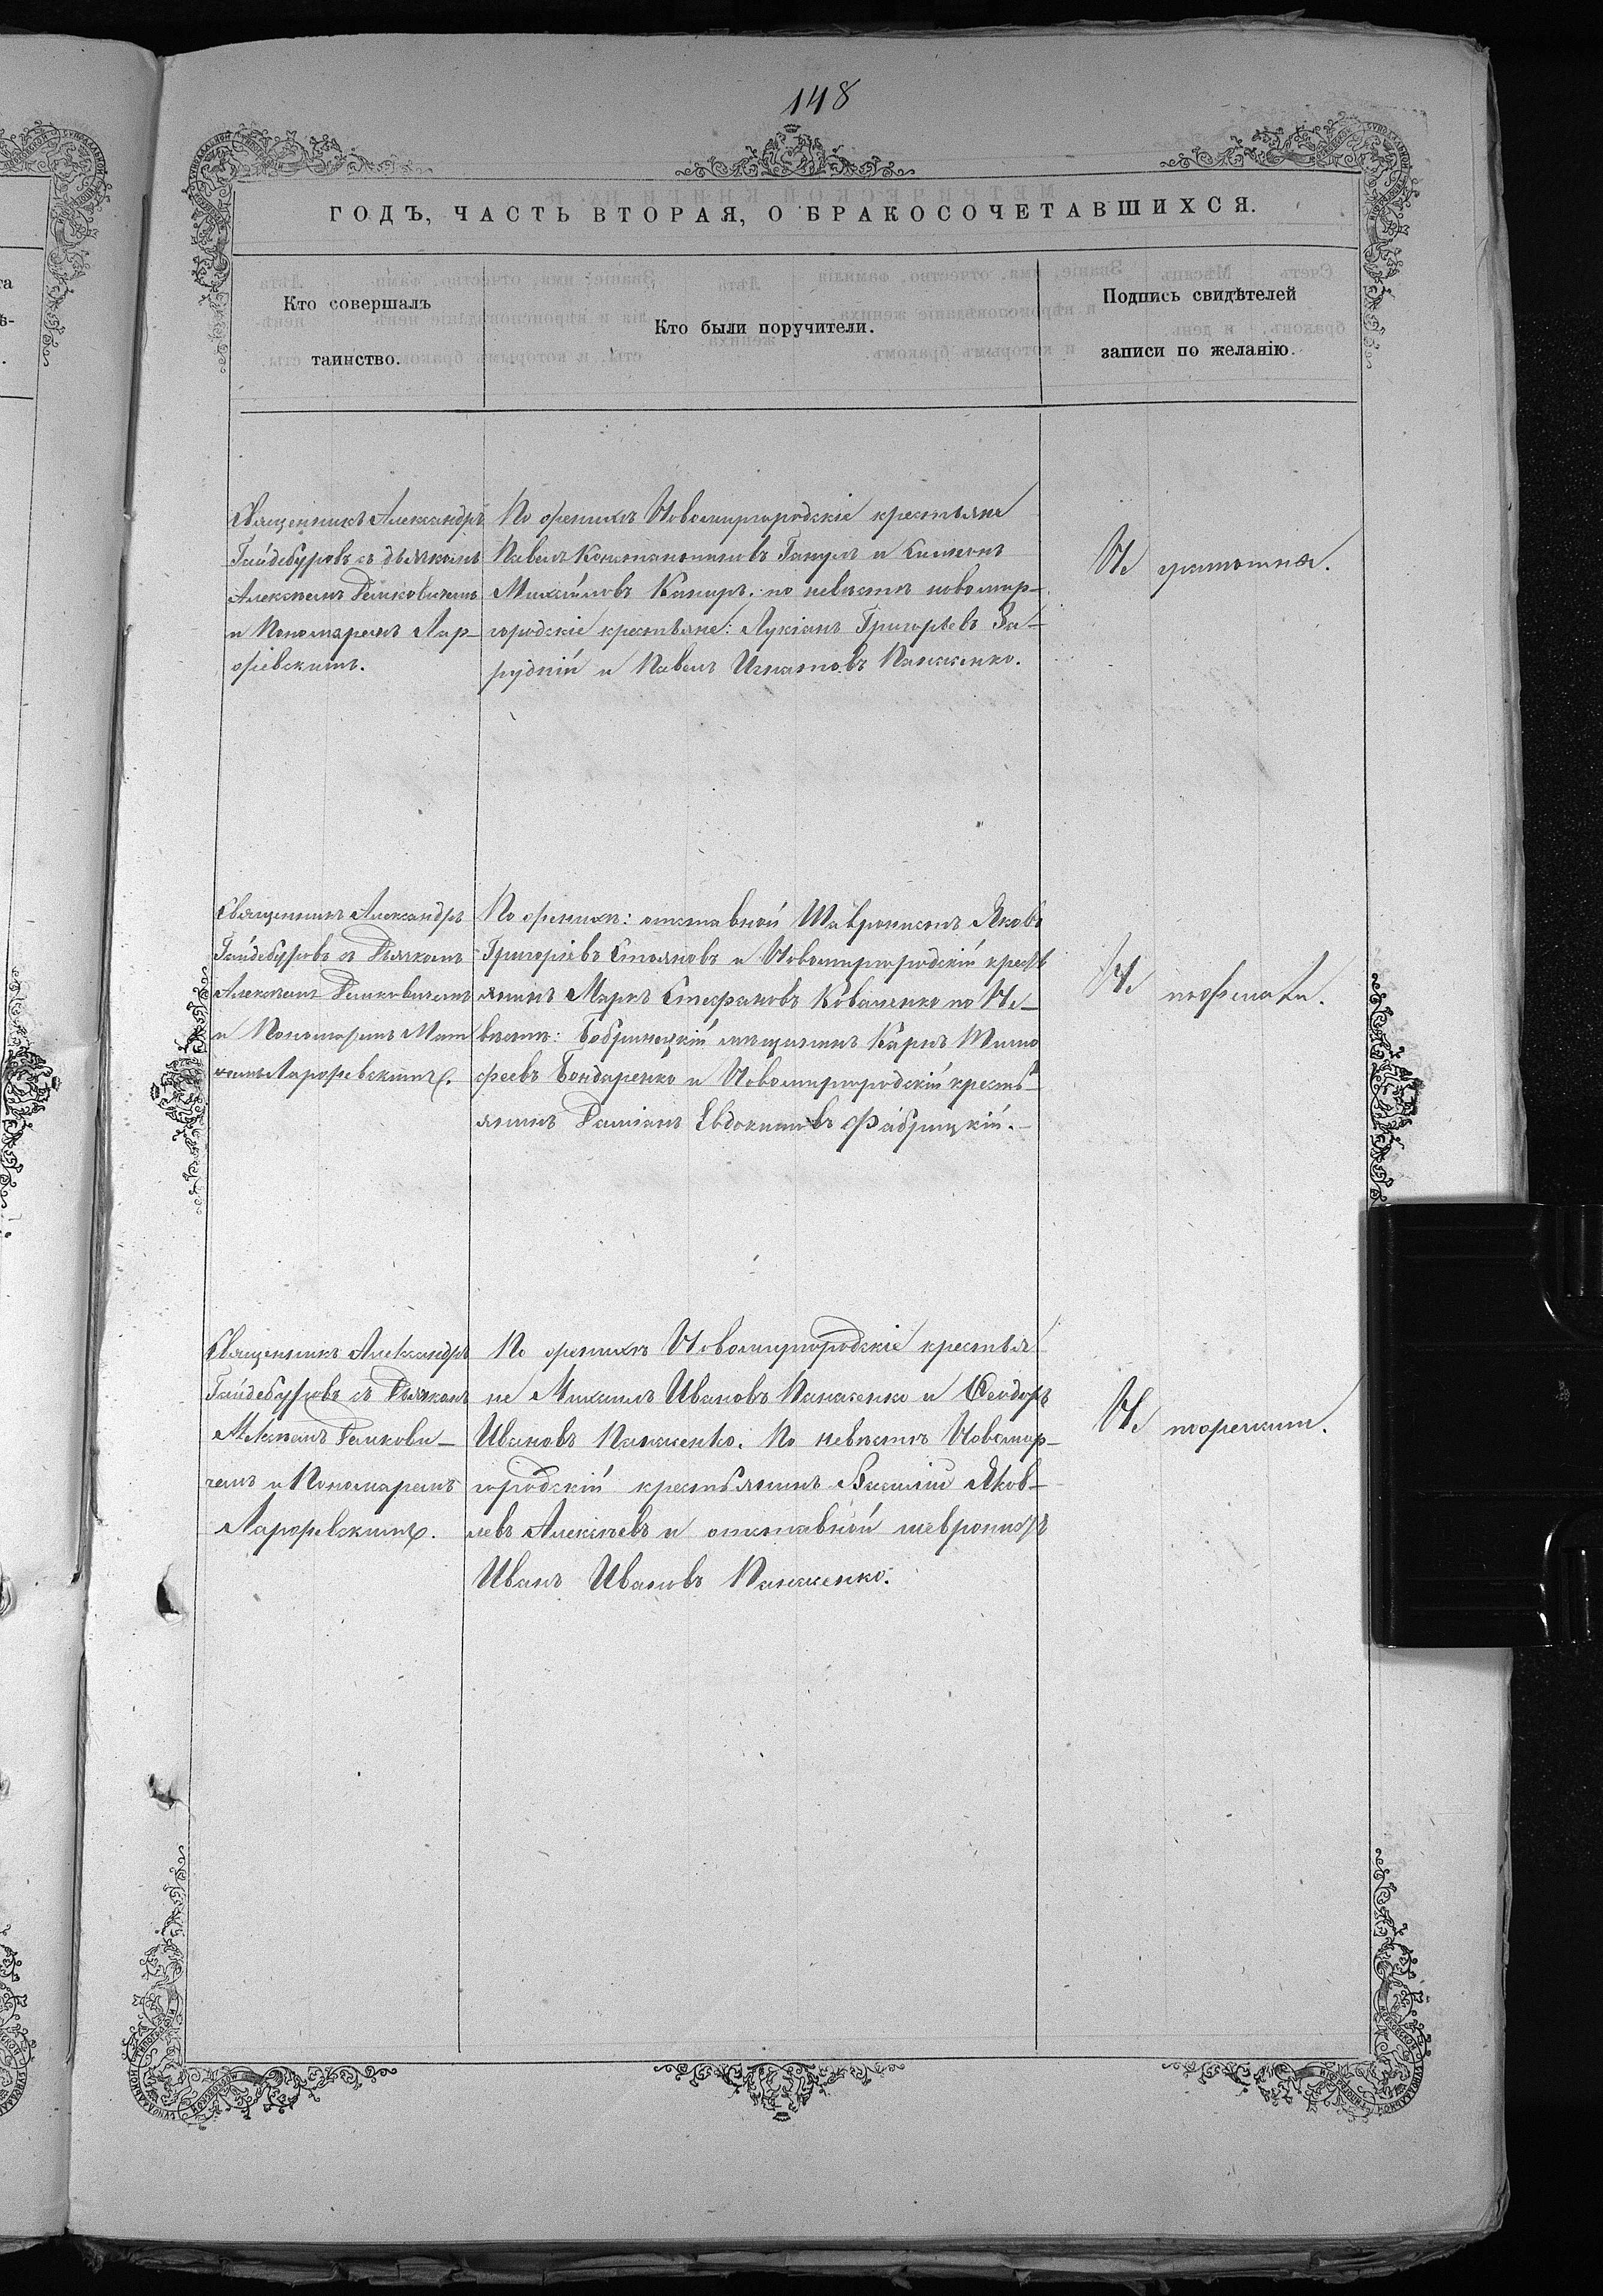 148
ГОДЪ, ЧАСТЬ ВТОРАЯ, О БРАКОСОЧЕТАВШИХСЯ.
Кто совершалъ
таинство.
Кто были поручители.
Подпись свидѣтелей
записи по желанію.
Священникъ Александръ
Гайдебуровъ съ дьячкомъ
Алексѣемъ Демковичемъ
и Пономаремъ Лар-
фіевскимъ.
По женихѣ Новомиргородскіе крестьяне
Павелъ Константиновъ Ганулъ и Симеонъ
Михайловъ Кануръ. по невѣстѣ новомир-
городскіе крестьяне: Лукіанъ Григорьевъ За-
рудній и Павелъ Игнатовъ Панасенко.
Не
Священникъ Александръ
Гайдебуровъ съ Дьячкомъ
Алексѣемъ Демковичемъ
и Пономаремъ
Ларфіевскимъ.
По женихѣ: отставной Шевронистъ Яковъ
Григоріевъ Стояновъ и Новомиргородскій кресть
янинъ Маркъ Стефановъ Коваленко по Не-
вѣстѣ: Бобринецкій мѣщанинъ Карпъ Тимо
феевъ Бондаренко и Новомиргородскій кресть
янинъ Даміанъ Евдокимовъ Фабрицкій.
Не
Священникъ Александръ
Гайдебуровъ съ Дьячкомъ
Алексѣемъ Демкови-
чемъ и Пономаремъ
Ларфіевскимъ.
По женихѣ Новомиргородскіе крестья
не Михаилъ Ивановъ Панасенко и Ѳеодоръ
Ивановъ Панасенко. По невѣстѣ Новомир-
городскій крестьянинъ Василій Яков-
левъ Алексѣевъ и отставной шевронистъ
Иванъ Ивановъ Панасенко.
Не